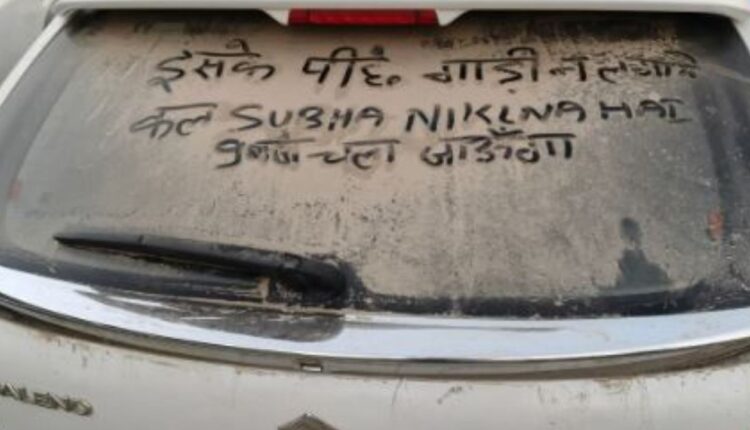 इसके पीछे गाड़ी न लगाये
कल SUBHA NIKLNA HAI
9 बजे चला जाऊँगा
ALENO